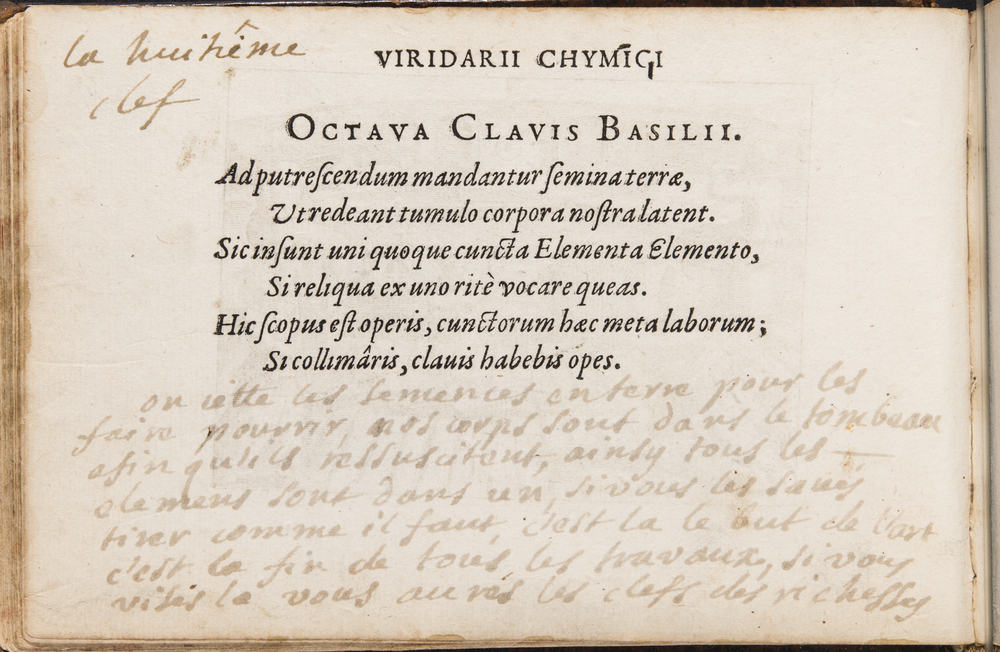 la huitiême
clef
VIRIDARII CHYMICI
OCTAVA CLAVIS BASILII.
Ad putreſcendum mandantur ſemina terræ,
Ut redeant tumulo corpora noſtra latent.
Sic inſunt uni quoque cuncta Elementa Elemento,
Si reliqua ex uno ritè vocare queas.
Hic ſcopus eſt operis, cunctorum hæc meta laborum;
Si collimâris, clavis habebis opes.
on iette les semences en terre pour les
faire pourrir, nos corps sont dans le tombeau
afin qu'ils ressuscitent, ainsy tous les
elemens sont dans un, si vous les savés
tirer comme il faut, c'est la le but de l'art
c'est la fin de tous les travaux, si vous
visés la vous aurés les clefs des richesses